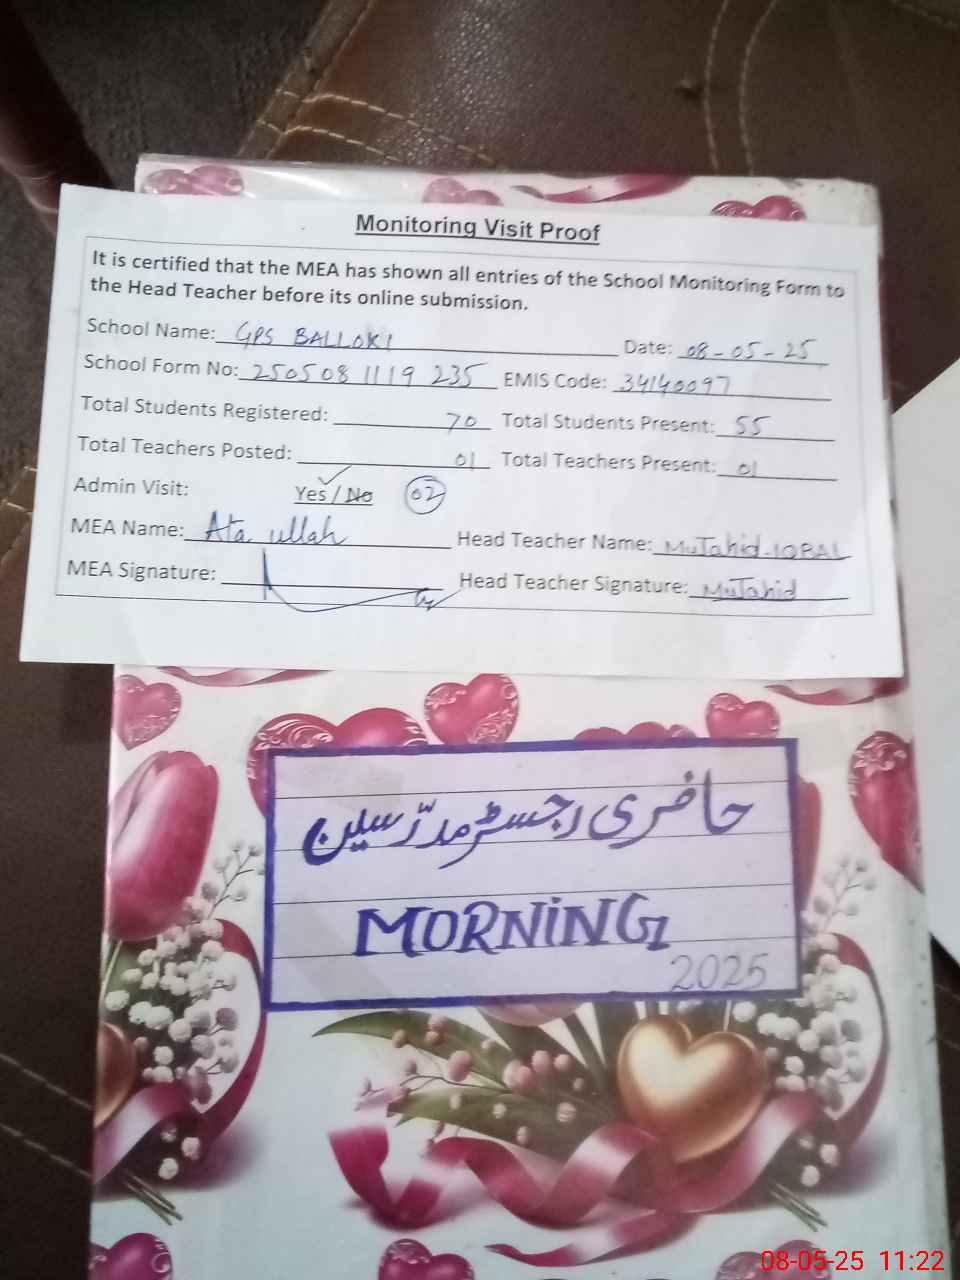 Monitoring Visit Proof
It is certified that the MEA has shown all entries of the School Monitoring Form to
the Head Teacher before its online submission.
School Name: GPS BALLOKI Date: 08-05-25
School Form No: 250508 1119 235 EMIS Code: 34140097
Total Students Registered: 70 Total Students Present: 55
Total Teachers Posted: 01 Total Teachers Present: 01
Admin Visit: Yes / No 02
MEA Name: Ata ullah Head Teacher Name: MuTahid-IQBAL
MEA Signature: Head Teacher Signature: MuTahid
حاضری رجسٹر مدرّسین
MORNiNG
2025
08-05-25 11:22